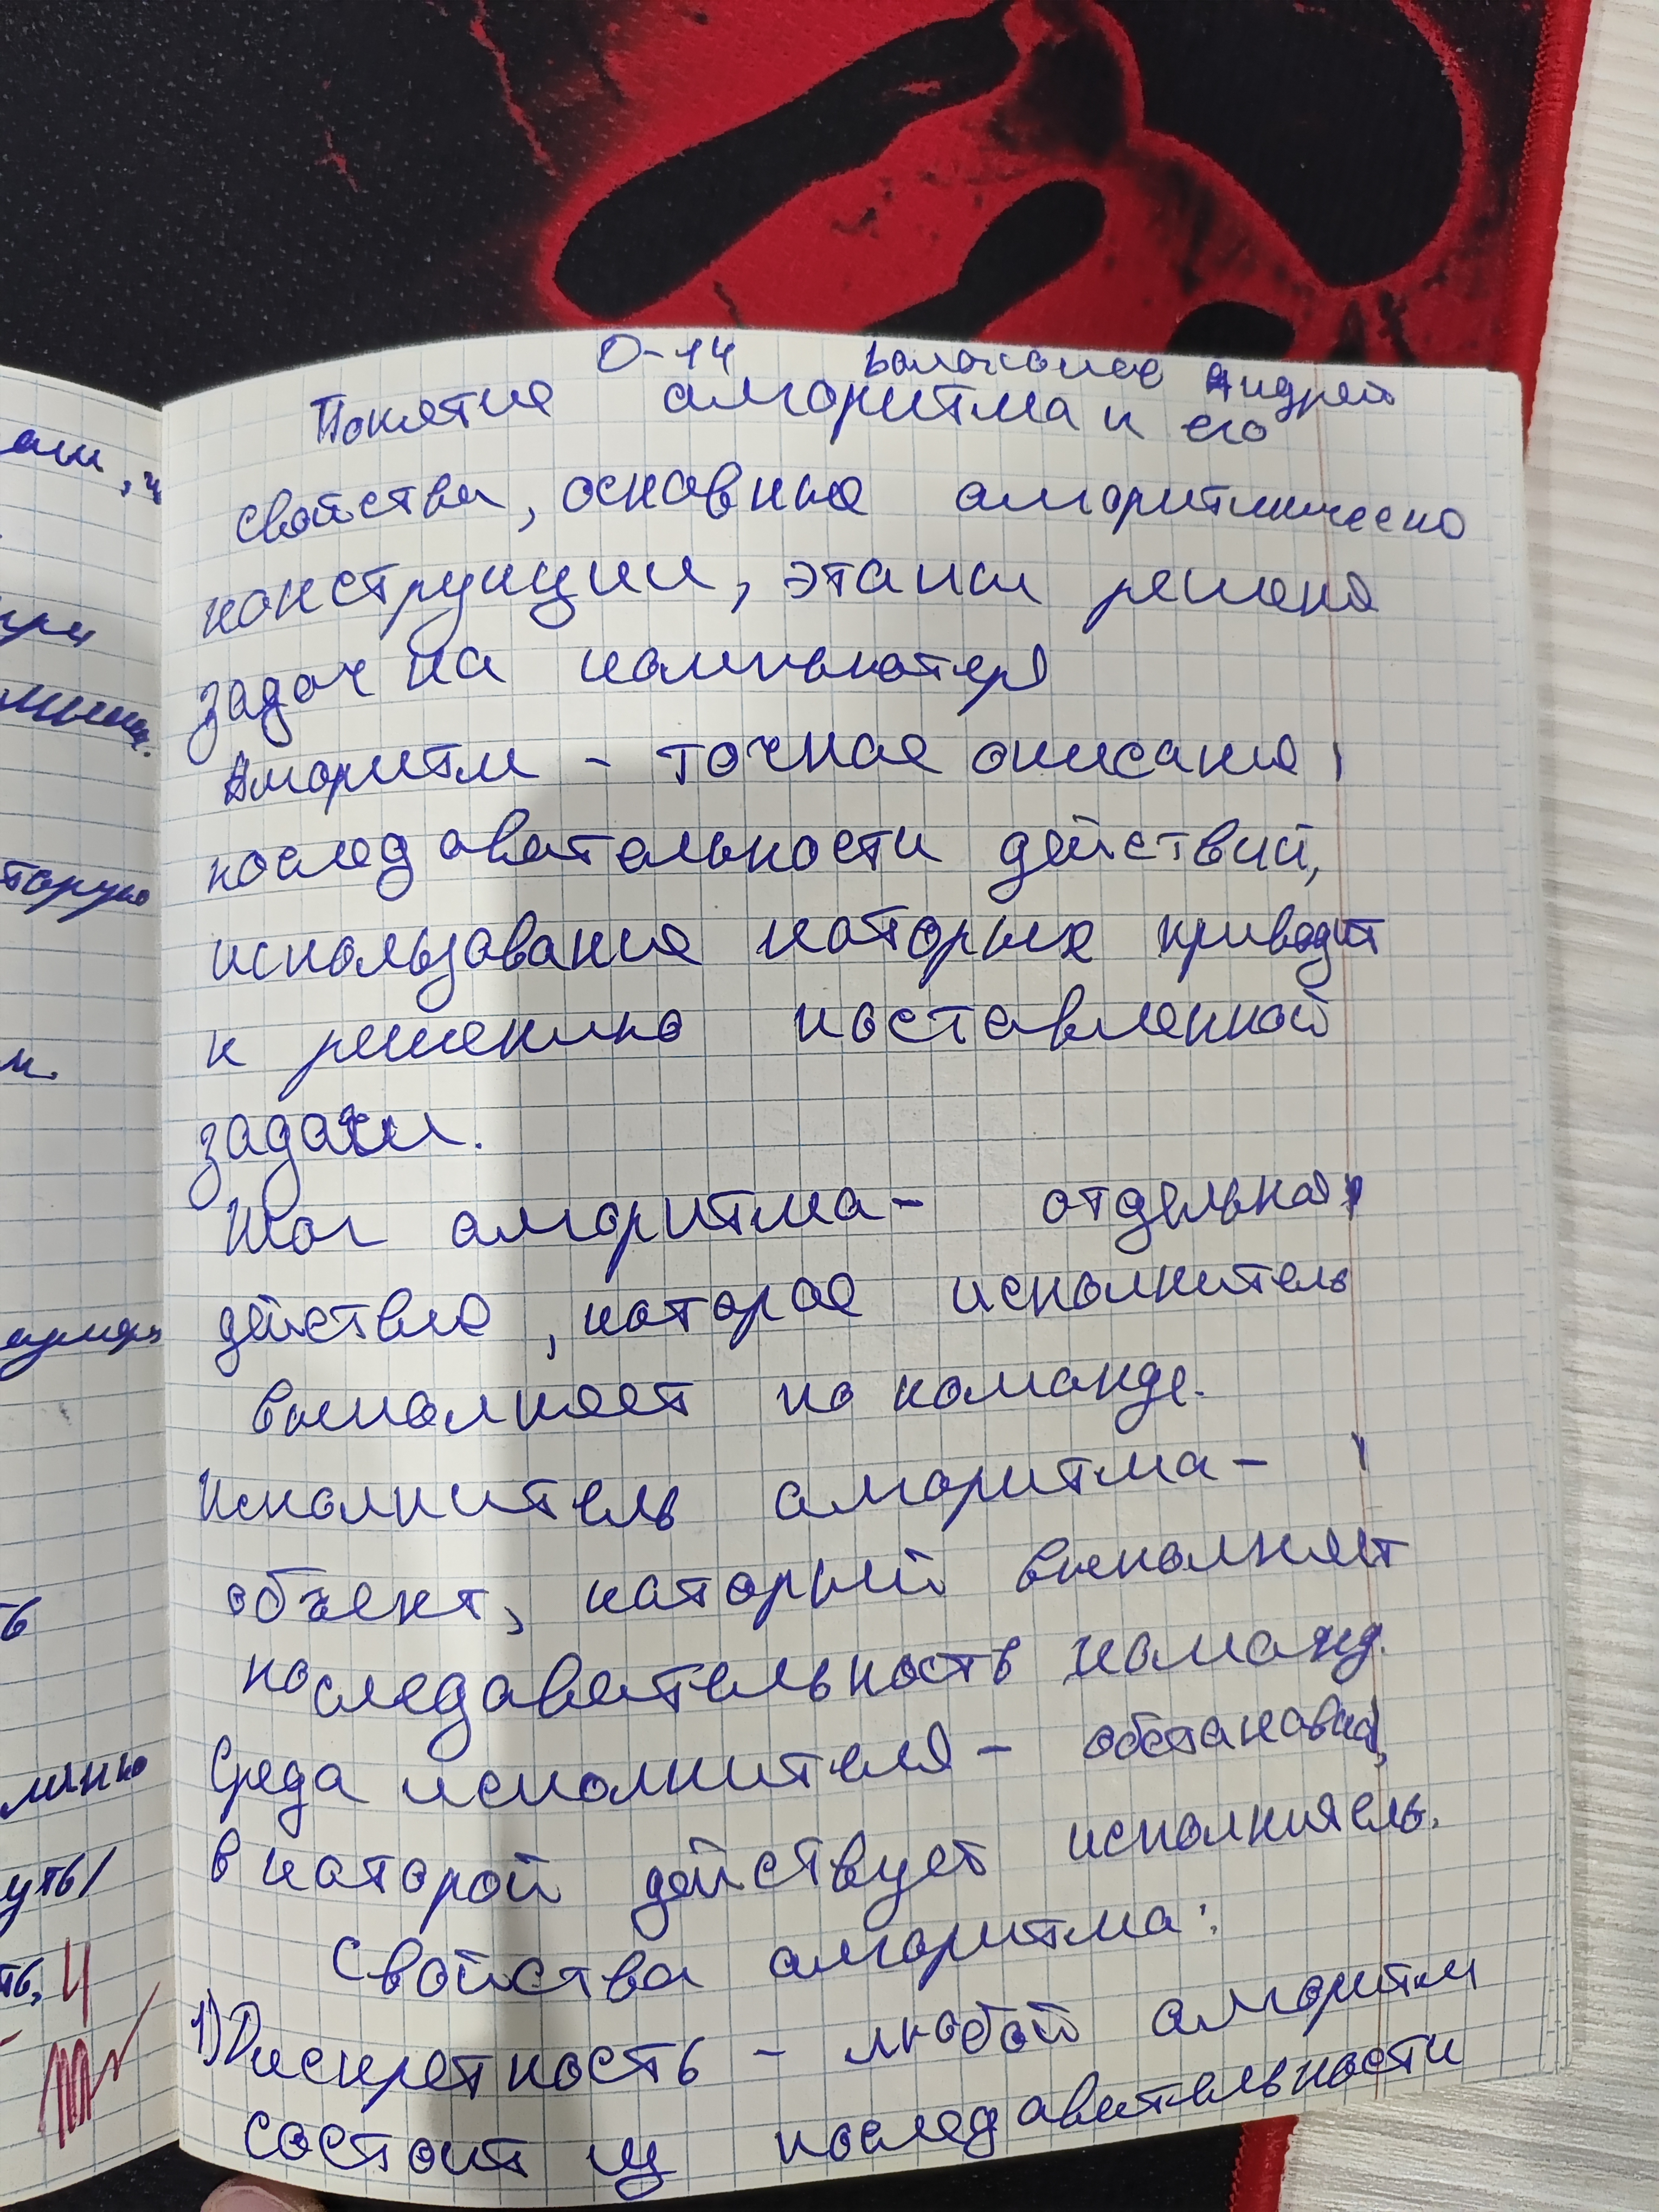 О-14 Андрей
Понятие алгоритма и его
свойства, основные алгоритмическ
конструкции, этапы решения
задач на компьютере
Алгоритм - точное описание
последовательности действий,
использование которых приводит
к решению поставленной
задачи.
Шаг алгоритма - отдельное
действие, которое исполнитель
выполняет по команде.
Исполнитель алгоритма -
объект, который выполняет
последавательность команд.
Среда исполнителя - обстановка,
в которой действует исполнитель.
Свойства алгоритма:
1) Дискретность - любой алгоритм
состоит из последавательности
ами, ч
при
торую
м.
ть
уть/
ть, 4